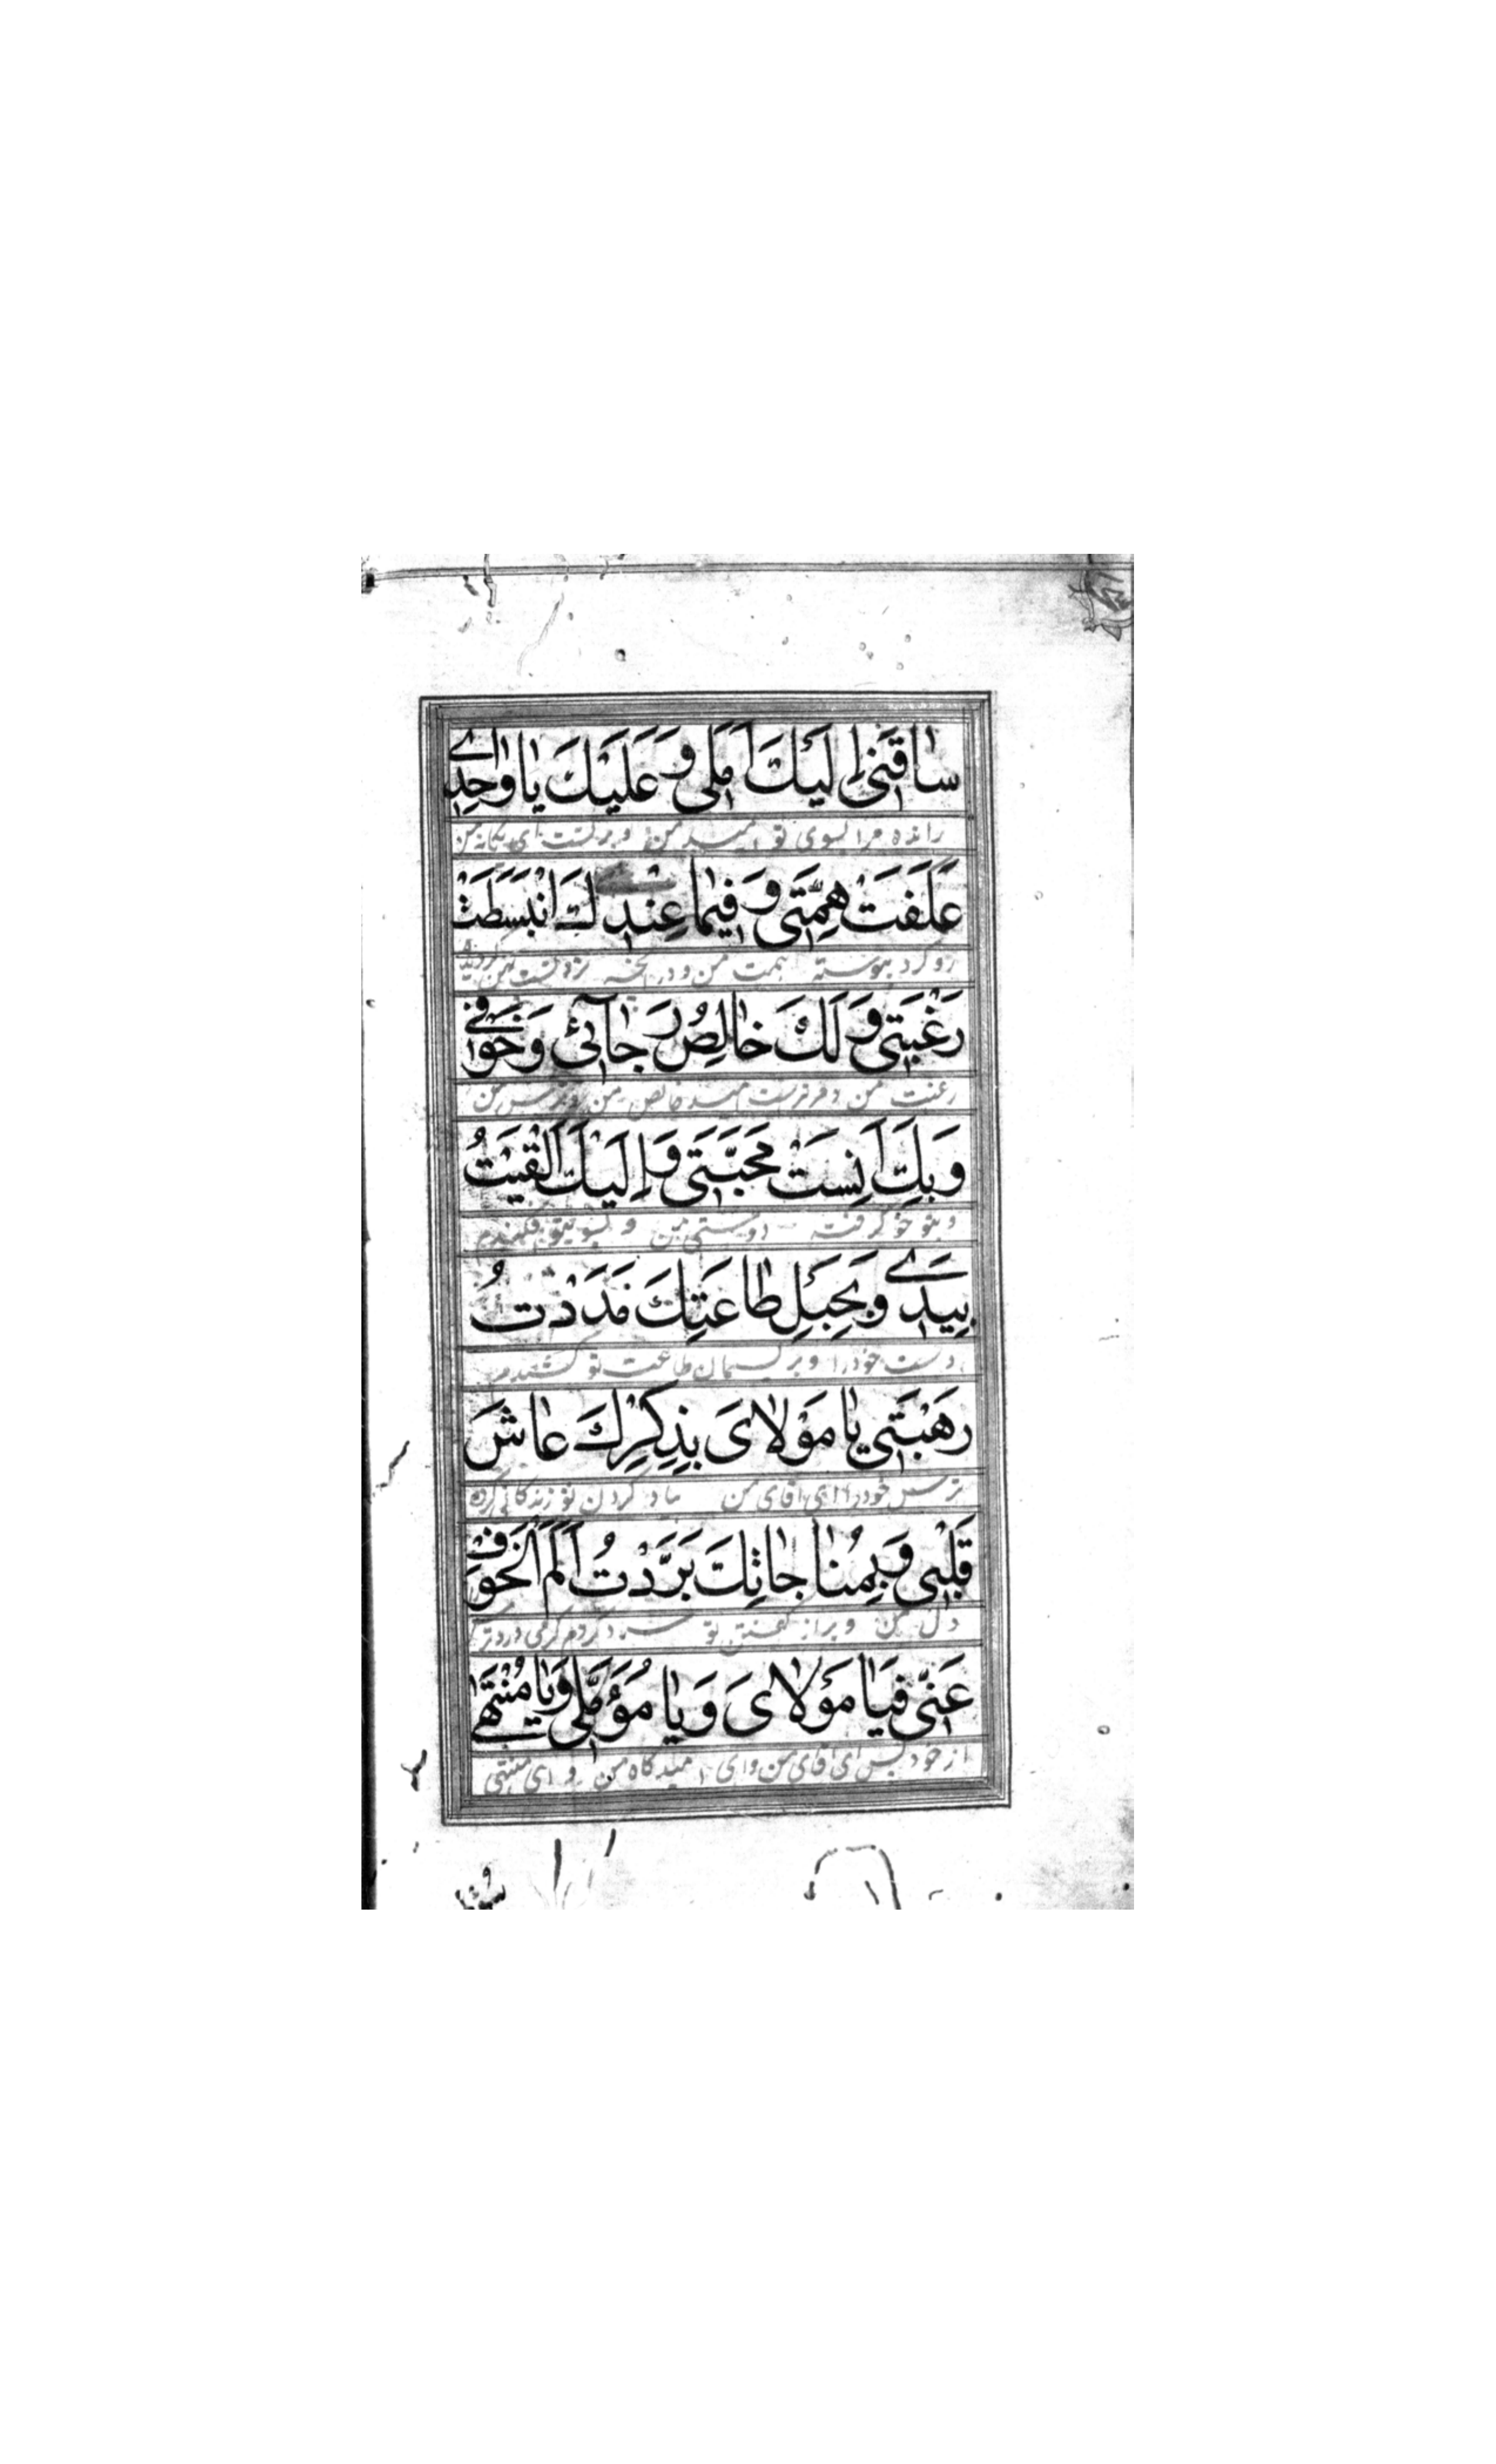 سٰاقَنی اِلَیْكَ اَمَلی وَ عَلَیْكَ یٰا وٰاحِدے
رانده مرا بسوی تو امید من و برتست ای یگانه من
عَلَفَتْ هِمَّتی وَ فیمٰا عِنْدَكَ انْبَسَطَتْ
رو کرد پیوسته همت من و در آنچه نزد تست پهن گردید
رَغْبَتی وَ لَكَ خٰالِصُ رَجٰآئی وَ خَوْفی
رغبت من و مر تراست امید خالص من و ترس من
وَ بِكَ اَنِسَتْ مَحَبَّتی وَ اِلَیْكَ اَلْقَیْتُ
و بتو خو گرفته دوستی من و بسوی تو افکندم
بِیَدے وَ بِحَبْلِ طٰاعَتِكَ مَدَدْتُ
دست خود را و بریسمان طاعت تو کشیدم
رَهْبَتی یٰا مَوْلٰایَ بِذِكْرِكَ عٰاشَ
ترس خود را ای آقای من بیاد کردن تو زندگانی کرده
قَلْبی وَ بِمُنٰاجٰاتِكَ بَرَّدْتُ اَلَمَ الْخَوْفِ
دل من و براز گفتن تو سرد کردم گرمی درد ترس
عَنّی فَیٰا مَوْلٰایَ وَ یٰا مُؤَمَّلی وَ یٰا مُنْتَهیٰ
از خود پس ای آقای من و ای امیدگاه من و ای منتهی